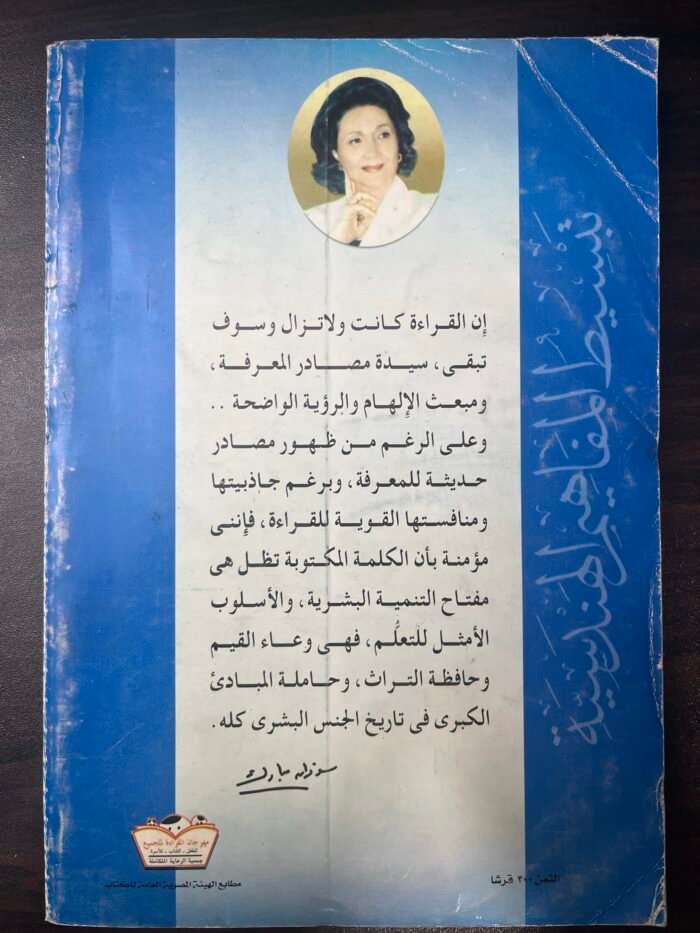 إن القراءة كانت ولاتزال وسوف
تبقى، سيدة مصادر المعرفة،
ومبعث الإلهام والرؤية الواضحة ..
وعلى الرغم من ظهور مصادر
حديثة للمعرفة، وبرغم جاذبيتها
ومنافستها القوية للقراءة، فإننى
مؤمنة بأن الكلمة المكتوبة تظل هى
مفتاح التنمية البشرية، والأسلوب
الأمثل للتعلُّم، فهى وعاء القيم
وحافظة التراث، وحاملة المبادئ
الكبرى فى تاريخ الجنس البشرى كله.
سوزان مبارك
تبسيط المفاهيم الهندسية
مهرجان القراءة للجميع
للطفل - للشباب - للأسرة
جمعية الرعاية المتكاملة
مطابع الهيئة المصرية العامة للكتاب
الثمن ٣٠٠ قرشا